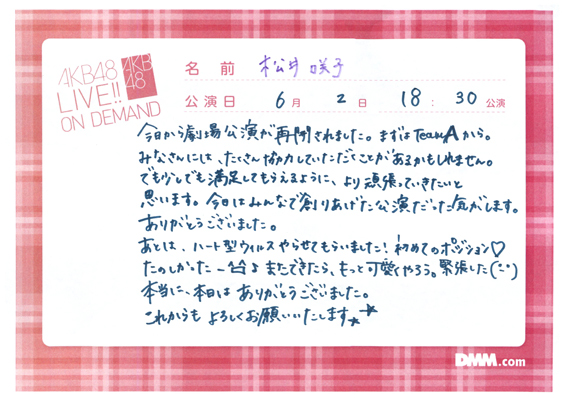 AKB48
LIVE!!
ON DEMAND
AKB
48
名 前 松井咲子
公演日 6月 2日 18:30公演
今日から劇場公演が再開されました。まずはTeamAから。
みなさんには、たくさん協力していただくことがあるかもしれません。
でも少しでも満足してもらえるように、より頑張っていきたいと
思います。今日はみんなで創りあげた公演だった気がします。
ありがとうございました。
あとは、ハート型ウィルスやらせてもらいました!初めてのポジション♡
たのしかったー またできたら、もっと可愛くやろう。緊張した
本当に、本日はありがとうございました。
これからもよろしくお願いいたします
DMM.com